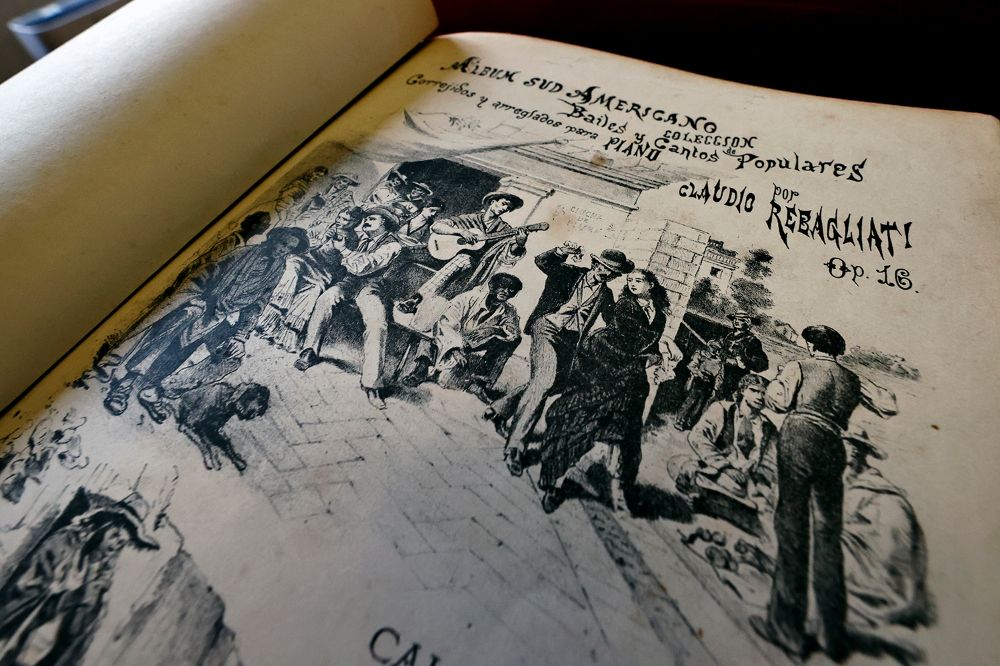 ALBUM SUD AMERICANO
COLECCION
de
Bailes y Cantos Populares
Correjidos y arreglados para PIANO
por
CLAUDIO REBAGLIATI
Op. 16.